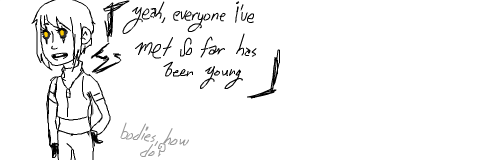 yeah, everyone i've
met so far has
been young
bodies, how
do?